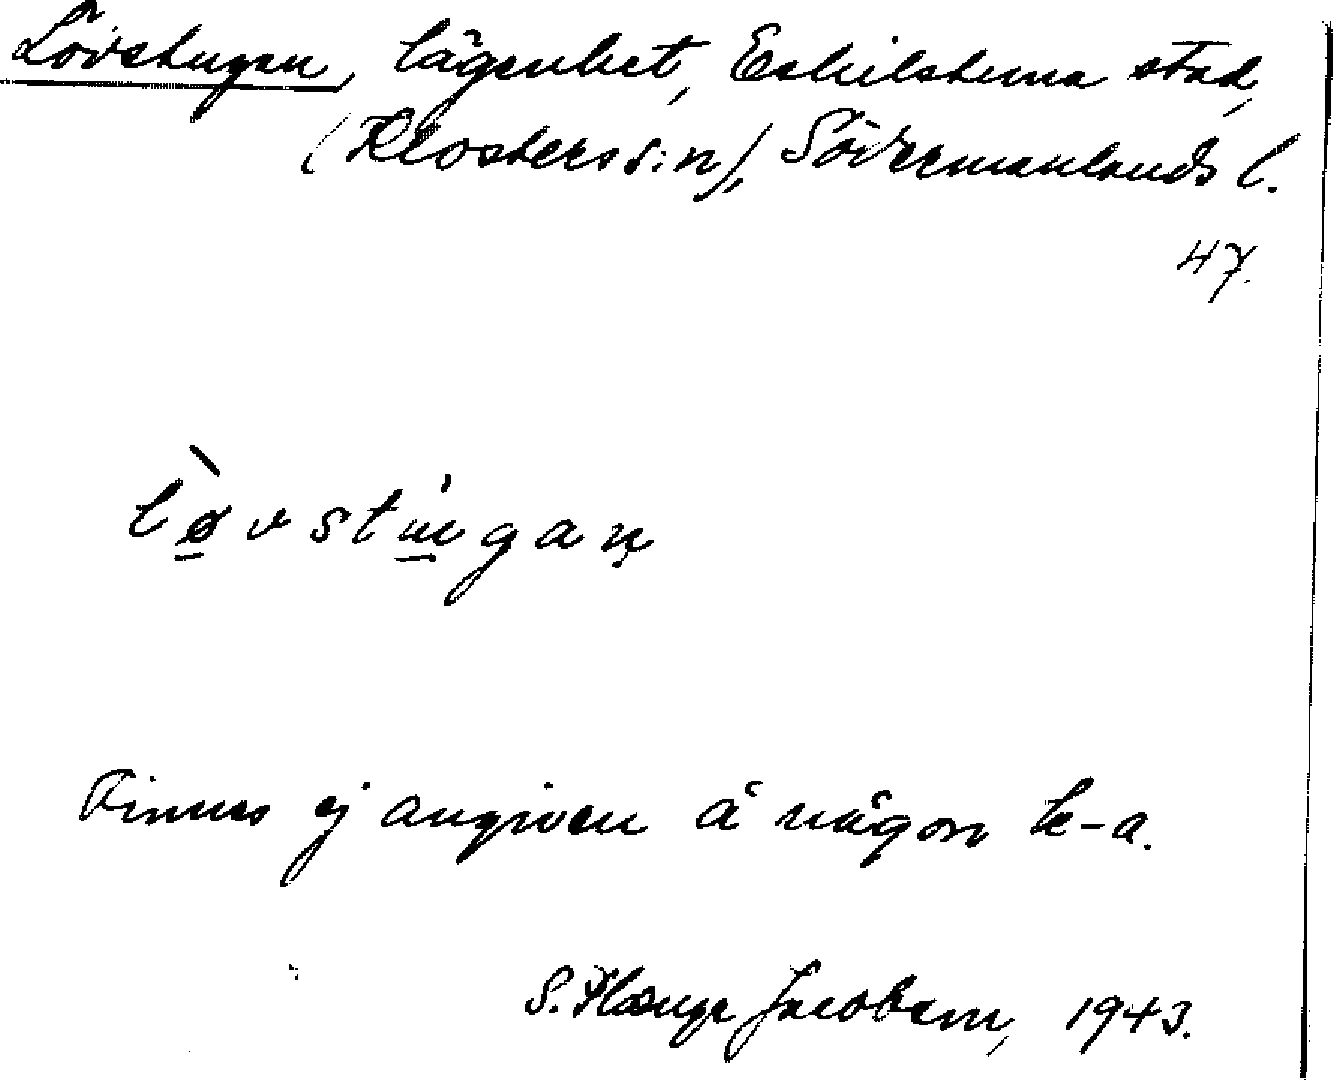 Lövstugan, lägenhet, Eskilstuna stad,
(Klosters s:n), Södermanlands l.
47.
lø̀vstu̍gan̥
Finnes ej angiven å någon k-a.
S. Jacobsson, 1943.